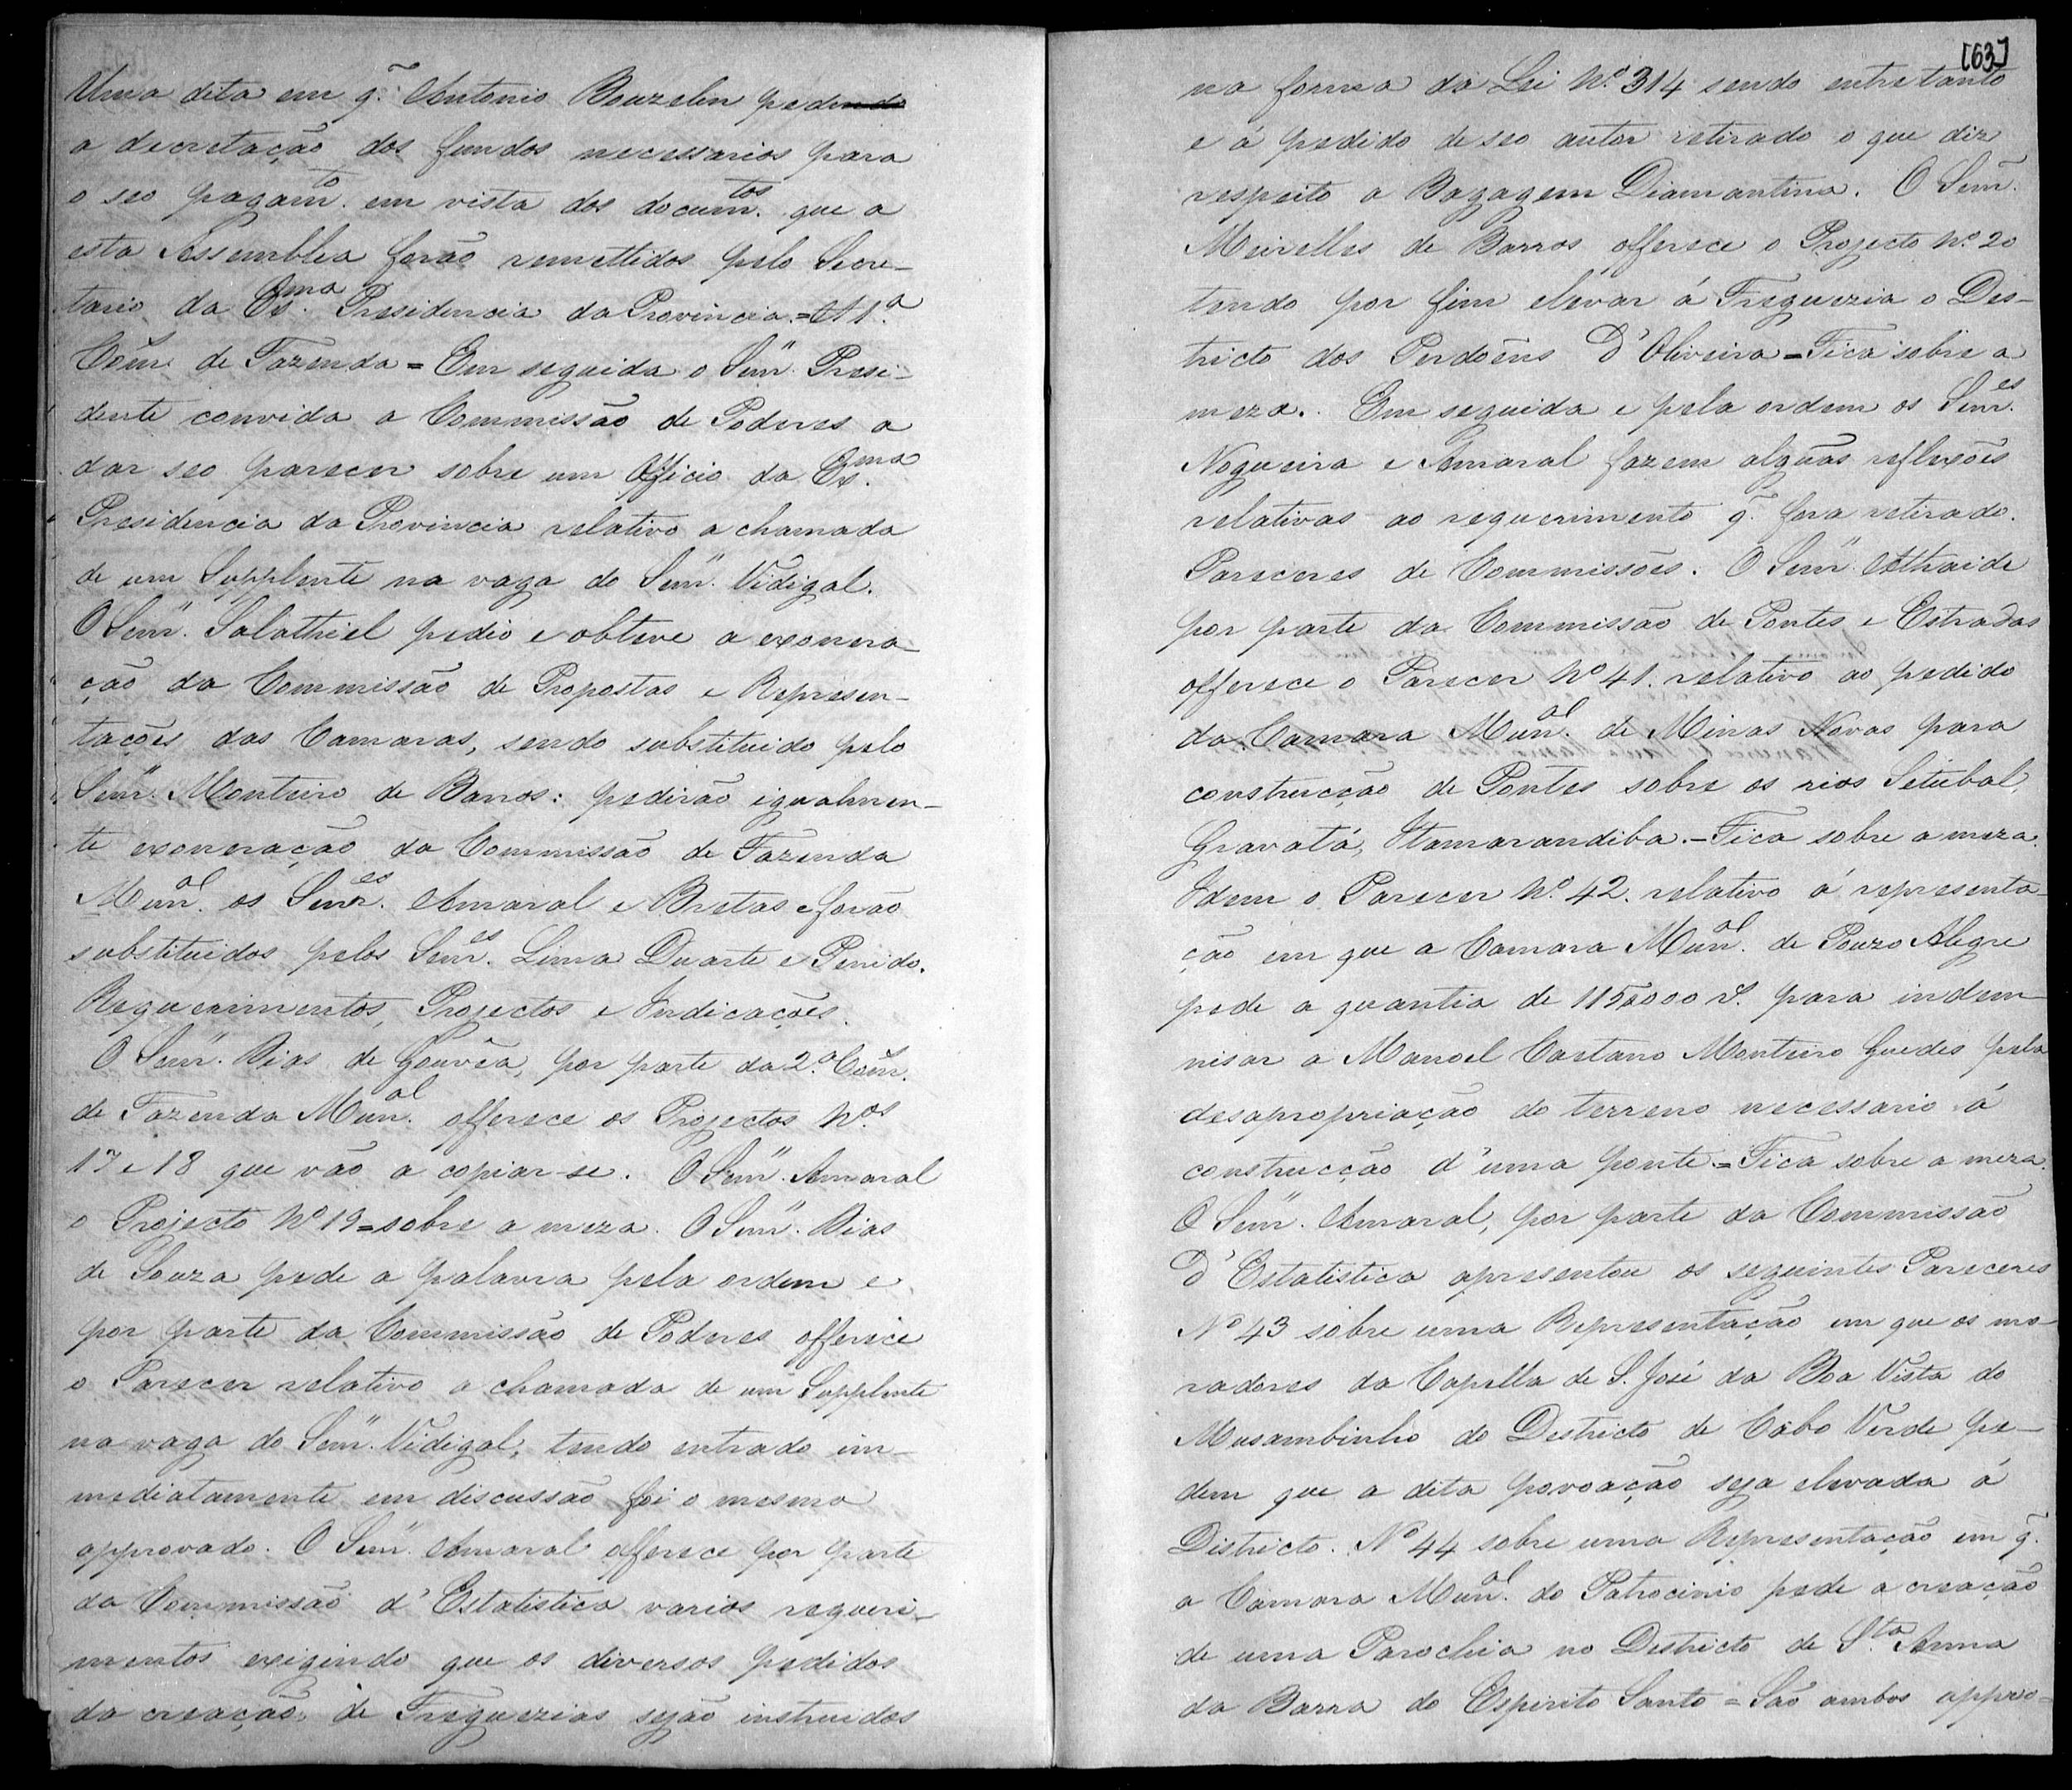 Uma dita em q.̃ Antonio Bouzelin pedindo
a decretação dos fundos necessarios para
o seo pagam.to em vista dos docum.tos que a
esta Assemblea forão remettidos pelo Secre-
tario da Ex.ma Presidencia da Provincia.=A 1.a
Com̃. de Fazenda = Em seguida o Sem̃r. Presi-
dente convida a Commissão de Poderes a
dar seo parecer sobre um Officio da Ex.ma
Presidencia da Provincia relativo a chamada
de um Supplente na vaga do Sem̃r. Vidigal.
O Sem̃r. Salathiel pedio e obteve a exonera-
ção da Commissão de Propostas e Represen-
tações das Camaras, sendo substituido pelo
Sem̃r. Monteiro de Barros: pedirão igualmen-
te exoneração da Commissão de Fazenda
Mun.al os Senr.es Amaral e Bretas e forão
substituidos pelos Senr.es Lima Duarte e Penido.
Requerimentos, Projectos e Indicações.
O Sem̃r. Dias de Gouvêa, por parte da 2.a Com̃.
de Fazenda Mun.al offerece os Projectos N.os
17 e 18 que vão a copiar-se. O Sem̃r. Amaral
o Projecto Nº 19=sobre a meza. O Sem̃r. Dias
de Souza pede a palavra pela ordem e
por parte da Commissão de Poderes offerece
o Parecer relativo a chamada de um Supplente
na vaga do Sem̃r. Vidigal, tendo entrado im-
mediatamente em discussão foi o mesmo
approvado. O Sem̃r. Amaral offerece por parte
da Commissão d'Estatistica varios requeri-
mentos exigindo que os diversos pedidos
da creação de Freguezias sejão instruidos
[63]
na forma da Lei Nº 314 sendo entretanto
e á pedido de seo autor retirado o que diz
respeito a Bagagem Diamantina. O Sem̃r.
Meirelles de Barros offerece o Projecto Nº 20
tendo por fim elevar á Freguezia o Des-
tricto dos Perdoẽns D'Oliveira=Fica sobre a
meza. Em seguida e pela ordem os Senr.es
Nogueira e Amaral fazem algũas reflexões
relativas ao requerimento q.̃ fora retirado.
Pareceres de Commissões. O Sem̃r. Athaide
por parte da Commissão de Pontes e Estradas
offerece o Parecer Nº 41. relativo ao pedido
da Camara Mun.al de Minas Novas para
construcção de Pontes sobre os rios Setubal,
Gravatá, Itamarandiba.-Fica sobre a meza.
Idem o Parecer Nº 42. relativo á representa-
ção em que a Camara Mun.al de Pouzo Alegre
pede a quantia de 115,000 rs. para indem-
nisar a Manoel Caetano Monteiro Guedes pela
desapropriação do terreno necessario á
construcção d'uma ponte.=Fica sobre a meza.
O Sem̃r. Amaral, por parte da Commissão
D'Estatistica apresentou os seguintes Pareceres
Nº 43 sobre uma Representação em que os mo-
radores da Capella de S. José da Boa Vista do
Musambinho do Districto de Cabo Verde pe-
dem que a dita povoação seja elevada á
Districto. Nº 44 sobre uma Representação em q.̃
a Camara Mun.al do Patrocinio pede a creação
de uma Parochia no Districto de S.ta Anna
da Barra do Espirito Santo = São ambos appro-